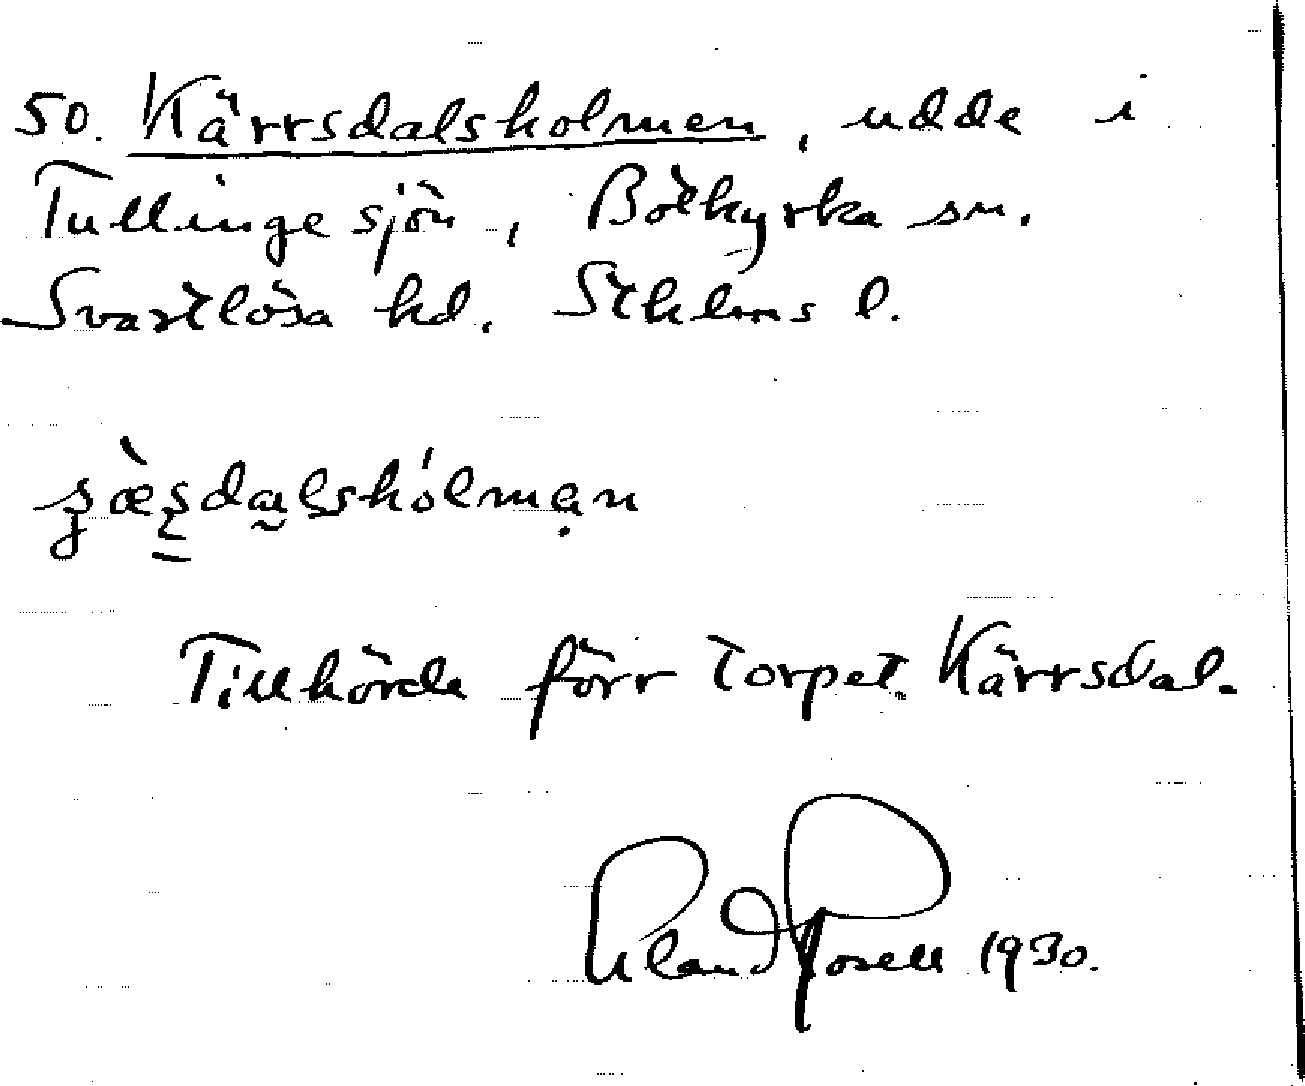 50. Kärrsdalsholmen, udde i
Tullingesjön, Botkyrka sn.
Svartlösa hd. Sthlms l.
Tillhörde förr torpet Kärrsdal.
Erland Rosell 1930.